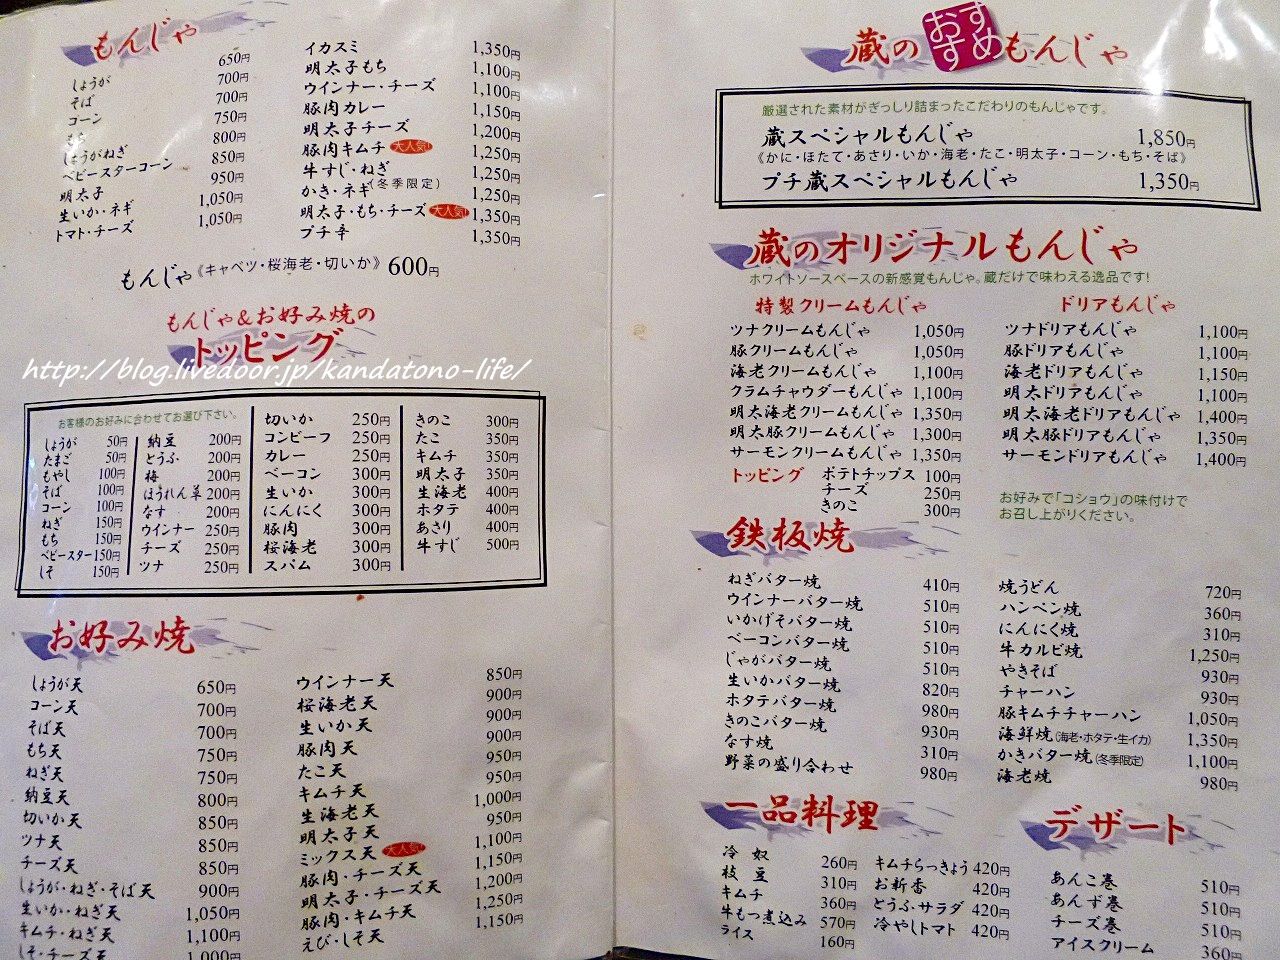 もんじゃ
しょうが 650円
そば 700円
コーン 700円
もち 750円
しょうがねぎ 800円
ベビースターコーン 850円
明太子 950円
生いか・ネギ 1,050円
トマト・チーズ 1,050円
イカスミ 1,350円
明太子もち 1,100円
ウインナー・チーズ 1,100円
豚肉カレー 1,150円
明太子チーズ 1,200円
豚肉キムチ 大人気! 1,250円
牛すじ・ねぎ 1,250円
かき・ネギ(冬季限定) 1,250円
明太子・もち・チーズ 大人気! 1,350円
プチ辛 1,350円
もんじゃ《キャベツ・桜海老・切いか》 600円
もんじゃ&お好み焼の
トッピング
http://blog.livedoor.jp/kandatono-life/
お客様のお好みに合わせてお選び下さい。
しょうが 50円
たまご 50円
もやし 100円
そば 100円
コーン 100円
ねぎ 150円
もち 150円
ベビースター 150円
しそ 150円
納豆 200円
とうふ 200円
梅 200円
ほうれん草 200円
なす 200円
ウインナー 250円
チーズ 250円
ツナ 250円
切いか 250円
コンビーフ 250円
カレー 250円
ベーコン 300円
生いか 300円
にんにく 300円
豚肉 300円
桜海老 300円
スパム 300円
きのこ 300円
たこ 350円
キムチ 350円
明太子 350円
生海老 400円
ホタテ 400円
あさり 400円
牛すじ 500円
お好み焼
しょうが天 650円
コーン天 700円
そば天 700円
もち天 750円
ねぎ天 750円
納豆天 800円
切いか天 850円
ツナ天 850円
チーズ天 850円
しょうが・ねぎ・そば天 900円
生いか・ねぎ天 1,050円
キムチ・ねぎ天 1,100円
しそ・チーズ天 1,000円
ウインナー天 850円
桜海老天 900円
生いか天 900円
豚肉天 900円
たこ天 950円
キムチ天 950円
生海老天 1,000円
明太子天 950円
ミックス天 大人気! 1,100円
豚肉・チーズ天 1,150円
明太子・チーズ天 1,200円
豚肉・キムチ天 1,250円
えび・しそ天 1,150円
蔵のおすすめもんじゃ
厳選された素材がぎっしり詰まったこだわりのもんじゃです。
蔵スペシャルもんじゃ 1,850円
《かに・ほたて・あさり・いか・海老・たこ・明太子・コーン・もち・そば》
プチ蔵スペシャルもんじゃ 1,350円
蔵のオリジナルもんじゃ
ホワイトソースベースの新感覚もんじゃ。蔵だけで味わえる逸品です!
特製クリームもんじゃ
ツナクリームもんじゃ 1,050円
豚クリームもんじゃ 1,050円
海老クリームもんじゃ 1,100円
クラムチャウダーもんじゃ 1,100円
明太海老クリームもんじゃ 1,350円
明太豚クリームもんじゃ 1,300円
サーモンクリームもんじゃ 1,350円
トッピング ポテトチップス 100円
チーズ 250円
きのこ 300円
ドリアもんじゃ
ツナドリアもんじゃ 1,100円
豚ドリアもんじゃ 1,100円
海老ドリアもんじゃ 1,150円
明太ドリアもんじゃ 1,100円
明太海老ドリアもんじゃ 1,400円
明太豚ドリアもんじゃ 1,350円
サーモンドリアもんじゃ 1,400円
お好みで「コショウ」の味付けで
お召し上がりください。
鉄板焼
ねぎバター焼 410円
ウインナーバター焼 510円
いかげそバター焼 510円
ベーコンバター焼 510円
じゃがバター焼 510円
生いかバター焼 820円
ホタテバター焼 980円
きのこバター焼 930円
なす焼 310円
野菜の盛り合わせ 980円
焼うどん 720円
ハンペン焼 360円
にんにく焼 310円
牛カルビ焼 1,250円
やきそば 930円
チャーハン 930円
豚キムチチャーハン 1,050円
海鮮焼(海老・ホタテ・生イカ) 1,350円
かきバター焼(冬季限定) 1,100円
海老焼 980円
一品料理
冷奴 260円
枝豆 310円
キムチ 360円
牛もつ煮込み 570円
ライス 160円
キムチらっきょう 420円
お新香 420円
とうふサラダ 420円
冷やしトマト 420円
デザート
あんこ巻 510円
あんず巻 510円
チーズ巻 510円
アイスクリーム 360円